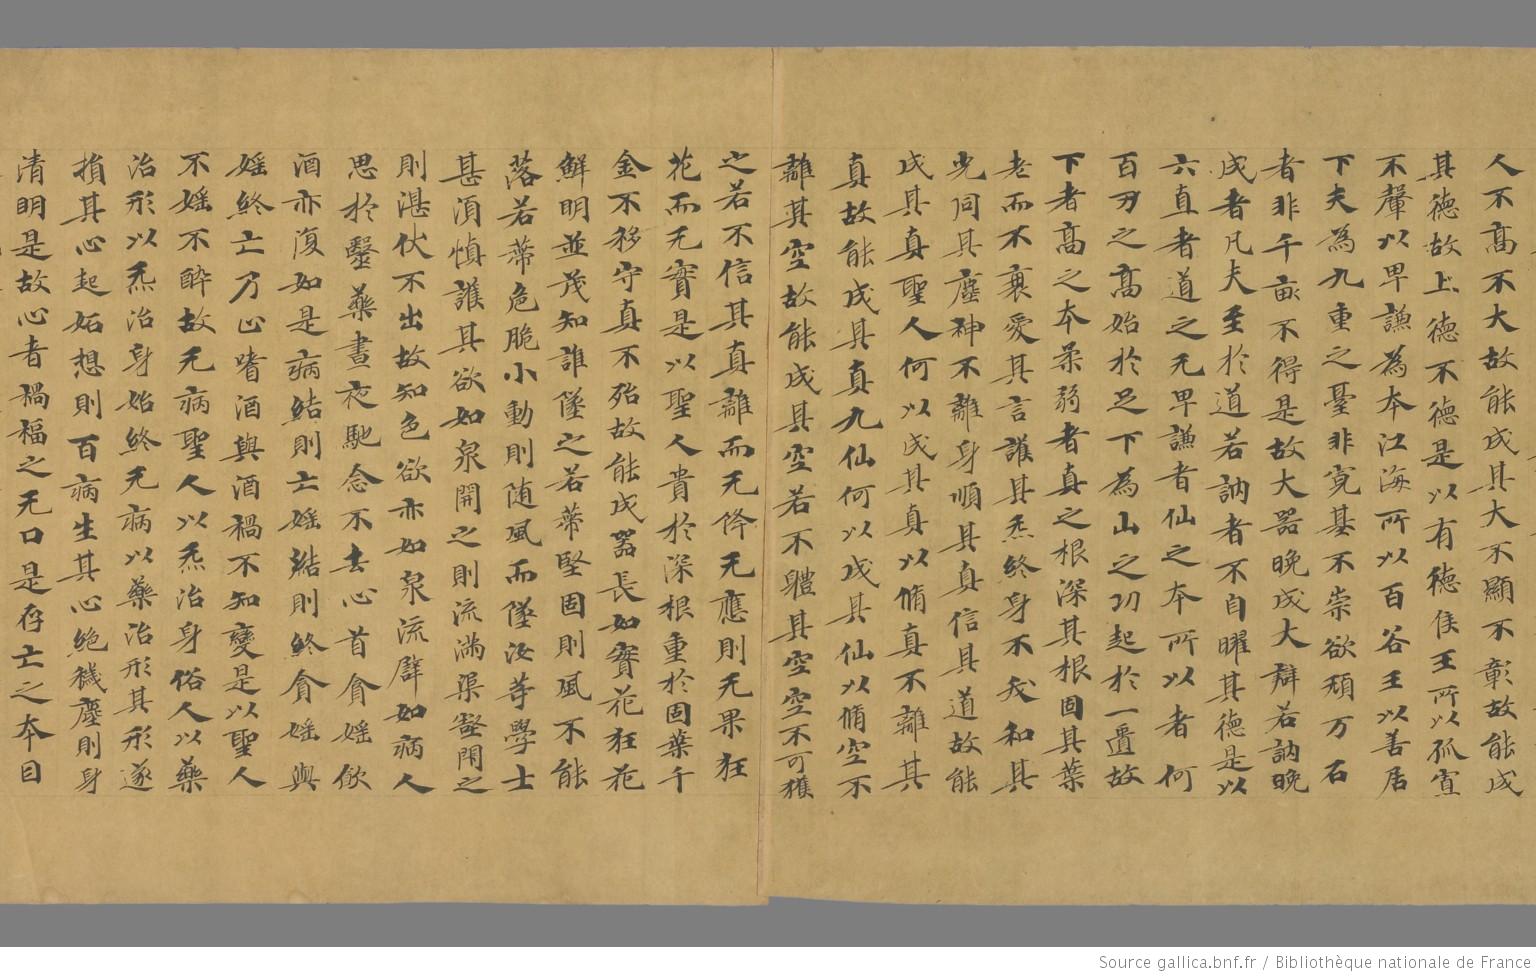 人不高不大故能成其大不顯不彰故能成
其德故上德不德是以有德侯王所以孤寡
不聲以卑謙為本江海所以百谷王以善居
下夫為九重之臺非寬基不崇欲頹万石
者非千畝不得是故大器晚成大辯若訥晚
成者凡夫至於道若訥者不自曜其德是以
六直者道之无卑謙者仙之本所以者何
百刃之高始於足下為山之功起於一匱故
下者高之本柔弱者真之根深其根固其葉
老而不衰愛其言護其炁終身不我和其
光同其塵神不離身順其真信其道故能
成其真聖人何以成其真以脩真不離其
真故能成其真九仙何以成其仙以脩空不
離其空故能成其空若不體其空空不可獲
之若不信其真離而无侔无應則无果狂
花而无實是以聖人貴於深根重於固葉千
金不移守真不殆故能成器長如寶花狂花
鮮明並茂知誰墜之若蒂堅固則風不能
落若蒂危脆小動則随風而墜汝等學士
甚須慎護其欲如泉開之則流滿渠壑閇之
則湛伏不出故知色欲亦如泉流譬如病人
思於醫藥晝夜馳念不去心首貪婬飲
酒亦復如是病結則亡婬結則終貪婬與
婬終亡乃止嗜酒與酒禍不知變是以聖人
不婬不醉故无病聖人以炁治身俗人以藥
治形以炁治身始終无病以藥治形其形遂
損其心起妬想則百病生其心絶穢塵則身
清明是故心者禍福之无口是存亡之本目